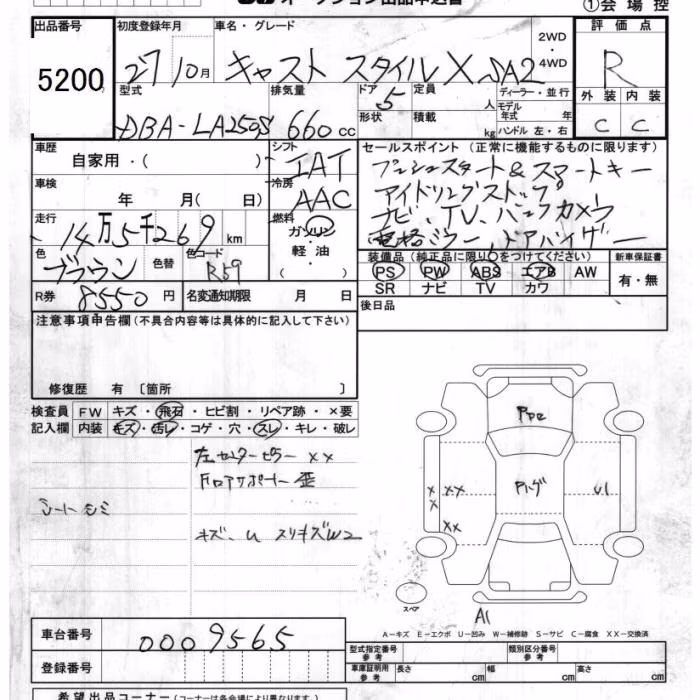 ①会場控
出品番号 初度登録年月 車名・グレード 評価点
5200 27 10月 キャスト スタイルX SA2 2WD・4WD R
型式 排気量 ドア 定員 ディーラー・並行 外装 内装
DBA-LA250S 660cc 5 人 モデル年式 年 C C
形状 積載 kg ハンドル 左・右
車歴 シフト セールスポイント (正常に機能するものに限ります)
自家用・( ) IAT プッシュスタート&スマートキー
車検 冷房 アイドリングストップ
年 月( 日) AAC ナビ、TV、バックカメラ
走行 燃料 電格ミラー ドアバイザー
14万5千269km ガソリン・軽油・( )
色 色替 色コード 装備品 (純正品に限り○をつけてください) 新車保証書
ブラウン R59 PS PW ABS エアB AW 有・無
SR ナビ TV カワ
R券 8550円 名変通知期限 月 日 後日品
注意事項申告欄(不具合内容等は具体的に記入して下さい)
修復歴 有 〔箇所 〕
検査員 FW キズ・飛石・ヒビ割・リペア跡・×要
記入欄 内装 キズ・汚レ・コゲ・穴・スレ・キレ・破レ
左センターピラー ××
Fロアサポート 歪
シートシミ
キズ、U スリキズW2
PPe
Pハゲ
× ×× U1
×
××
スペア
A1
A-キズ E-エクボ U-凹み W-補修跡 S-サビ C-腐食 XX-交換済
車台番号 0009565
登録番号
型式指定番号 参考 類別区分番号 参考
車庫証明用 参考 長さ cm 幅 cm 高さ cm
希望出品コーナー(コーナーは各会場により異なります。)